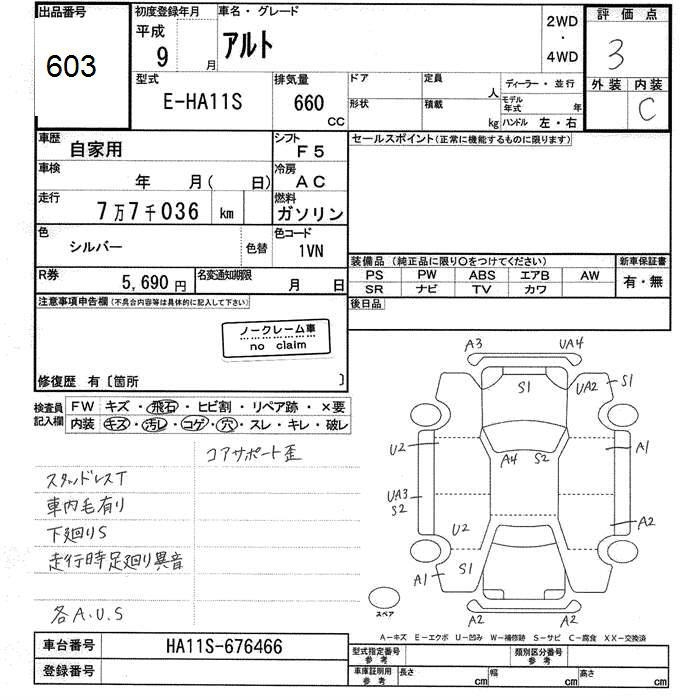 出品番号
603
初度登録年月
平成
9 月
車名・グレード
アルト
2WD
・
4WD
評価点
3
外装 内装
C
型式
E-HA11S
排気量
660
CC
ドア
定員
人
ディーラー・並行
形状
積載
kg
モデル年式
年
ハンドル 左・右
車歴
自家用
シフト
F5
車検
年 月( 日)
冷房
AC
走行
7万7千036 km
燃料
ガソリン
色
シルバー
色替
色コード
1VN
R券
5,690円
名変通知期限
月 日
セールスポイント(正常に機能するものに限ります)
装備品 (純正品に限り〇をつけてください)
新車保証書
PS PW ABS エアB AW
SR ナビ TV カワ
有・無
後日品
注意事項申告欄(不具合内容等は具体的に記入して下さい)
ノークレーム車
no claim
修復歴 有〔箇所 〕
検査員記入欄
FW キズ・飛石・ヒビ割・リペア跡・×要
内装 キズ・汚レ・コゲ・穴・スレ・キレ・破レ
コアサポート歪
スタッドレスT
車内毛有り
下廻りS
走行時足廻り異音
各A.U.S
A3 UA4
S1 UA2 S1
U2 A4 S2 A1
UA3
S2
U2 A2
A1 S1
A2 A2
スペア
A-キズ E-エクボ U-凹み W-補修跡 S-サビ C-腐食 XX-交換済
車台番号
HA11S-676466
登録番号
型式指定番号
参考
類別区分番号
参考
車庫証明用
参考
長さ cm
幅 cm
高さ cm